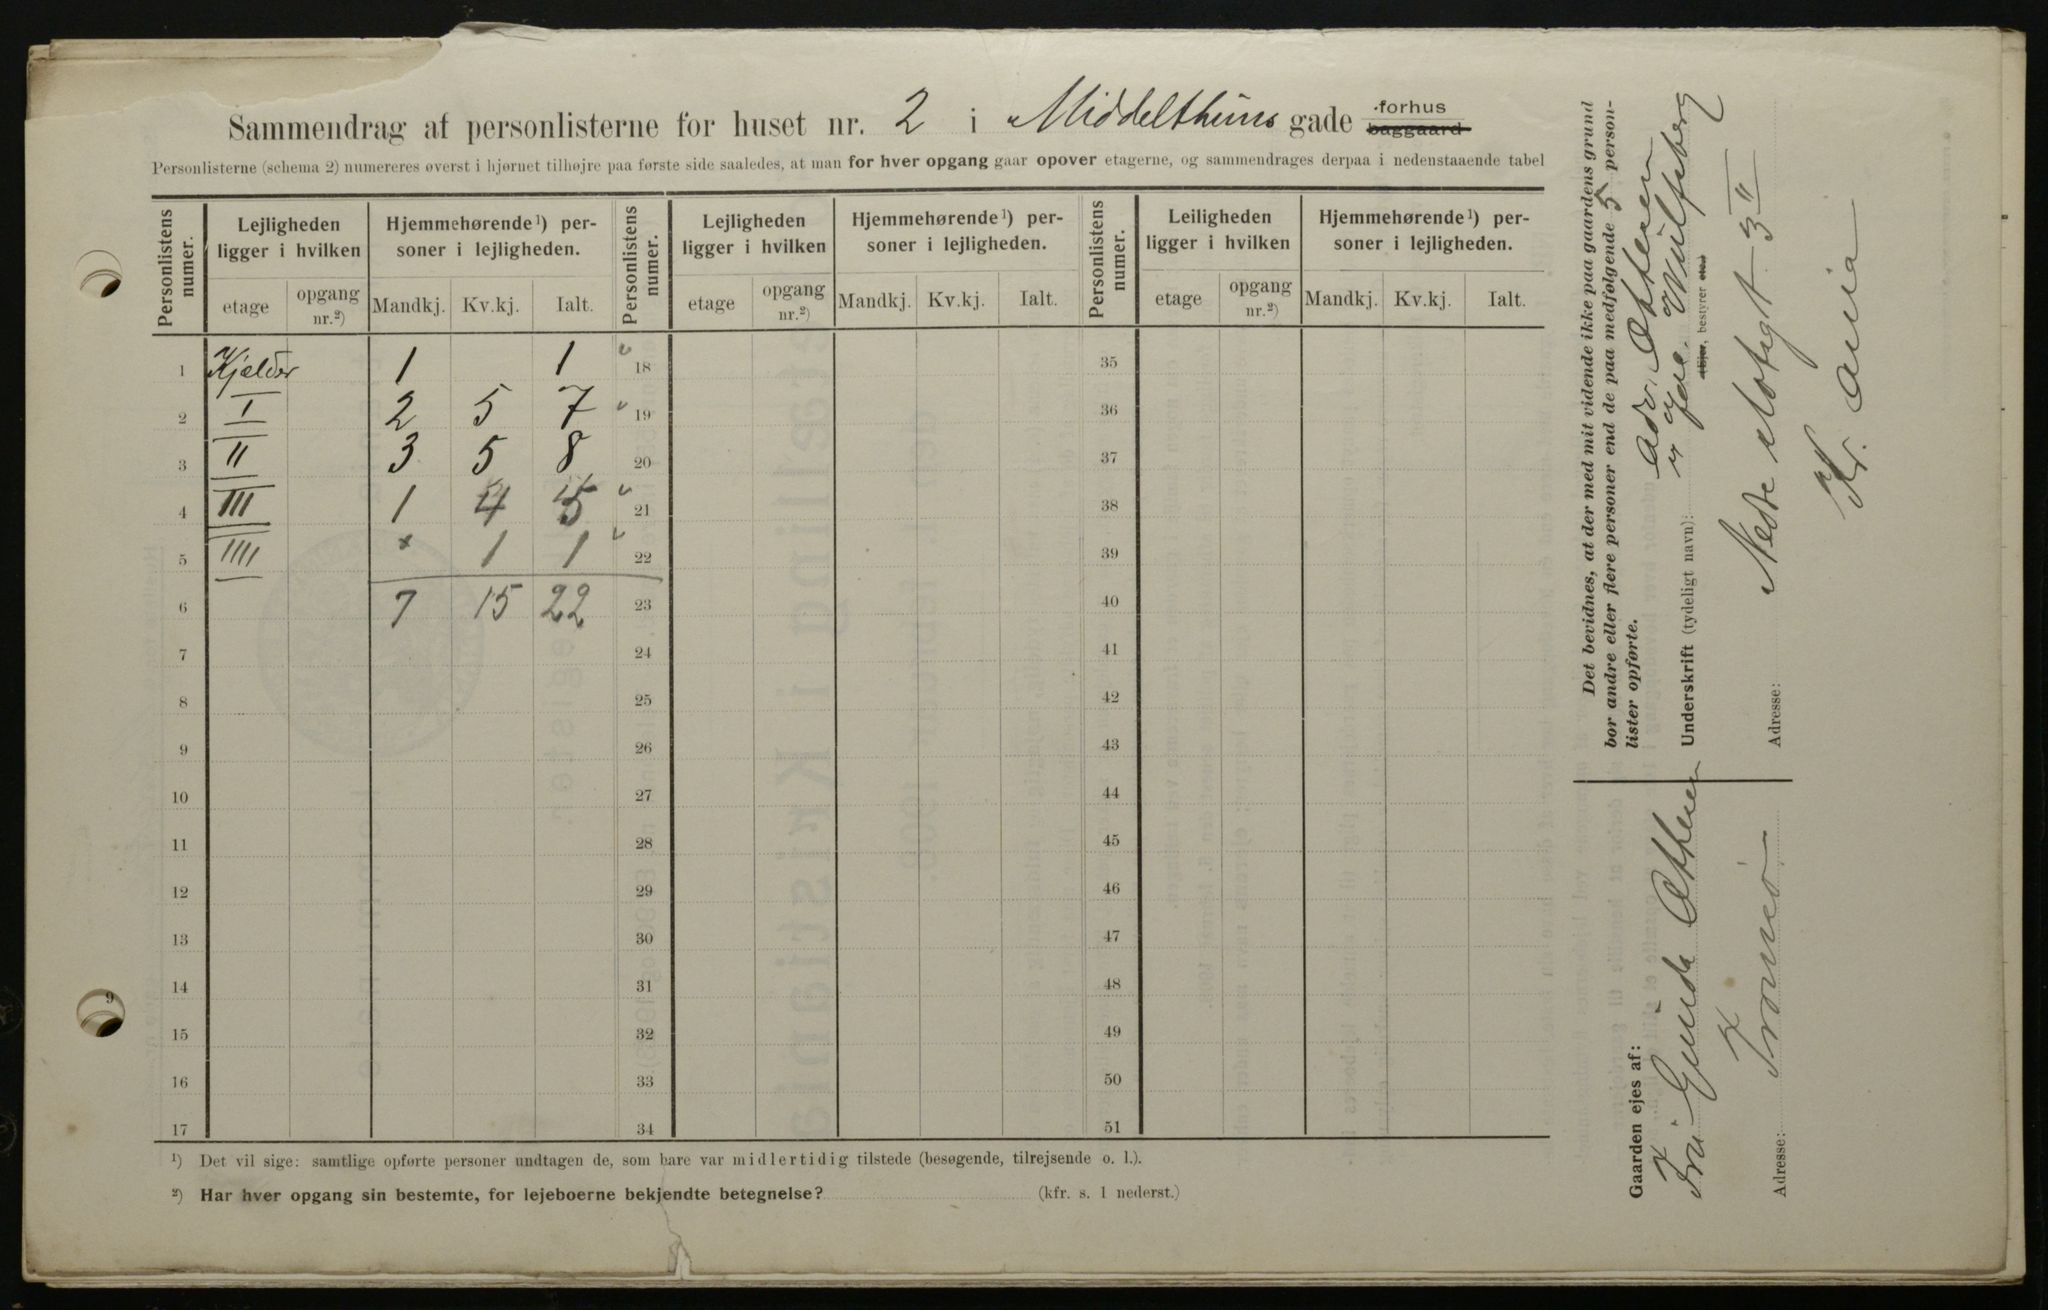 Sammendrag af personlisterne for huset nr. 2 i Middelthuns gade forhus baggaard
Personlisterne (schema 2) numereres øverst i hjørnet tilhøjre paa første side saaledes, at man for hver opgang gaar opover etagerne, og sammendrages derpaa i nedenstaaende tabel
Personlistens numer. Lejligheden ligger i hvilken Hjemmehørende ¹) personer i lejligheden. Personlistens numer. Lejligheden ligger i hvilken Hjemmehørende ¹) personer i lejligheden. Personlistens numer. Leiligheden ligger i hvilken Hjemmehørende ¹) personer i lejligheden.
etage opgang nr.²) Mandkj. Kv.kj. Ialt. etage opgang nr.²) Mandkj. Kv.kj. Ialt. etage opgang nr.²) Mandkj. Kv.kj. Ialt.
1 Kjælder 1 1 18 35
2 I 2 5 7 19 36
3 II 3 5 8 20 37
4 III 1 4 5 21 38
5 IIII 1 1 22 39
6 7 15 22 23 40
7 24 41
8 25 42
9 26 43
10 27 44
11 28 45
12 29 46
13 30 47
14 31 48
15 32 49
16 33 50
17 34 51
¹) Det vil sige: samtlige opførte personer undtagen de, som bare var midlertidig tilstede (besøgende, tilrejsende o. l.).
²) Har hver opgang sin bestemte, for lejeboerne bekjendte betegnelse? (kfr. s. 1 nederst.)
Det bevidnes, at der med mit vidende ikke paa gaardens grund
bor andre eller flere personer end de paa medfølgende 5 person-
lister opførte.
Underskrift (tydeligt navn):
(Ejer, bestyrer etc.)
Adresse: Nedre Slotsgt 3
Kr. ania
Gaarden ejes af:
Adresse: Tromsö
9